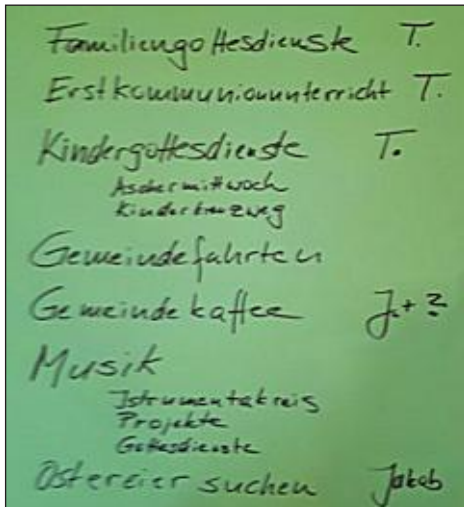 Familiengottesdienste T.
Erstkommunionunterricht T.
Kindergottesdienste T.
Aschermittwoch
Kinderkreuzweg
Gemeindefahrten
Gemeindekaffee J. + ?
Musik
Istrumentakreis
Projekte
Gottesdienste
Ostereier suchen Jakob